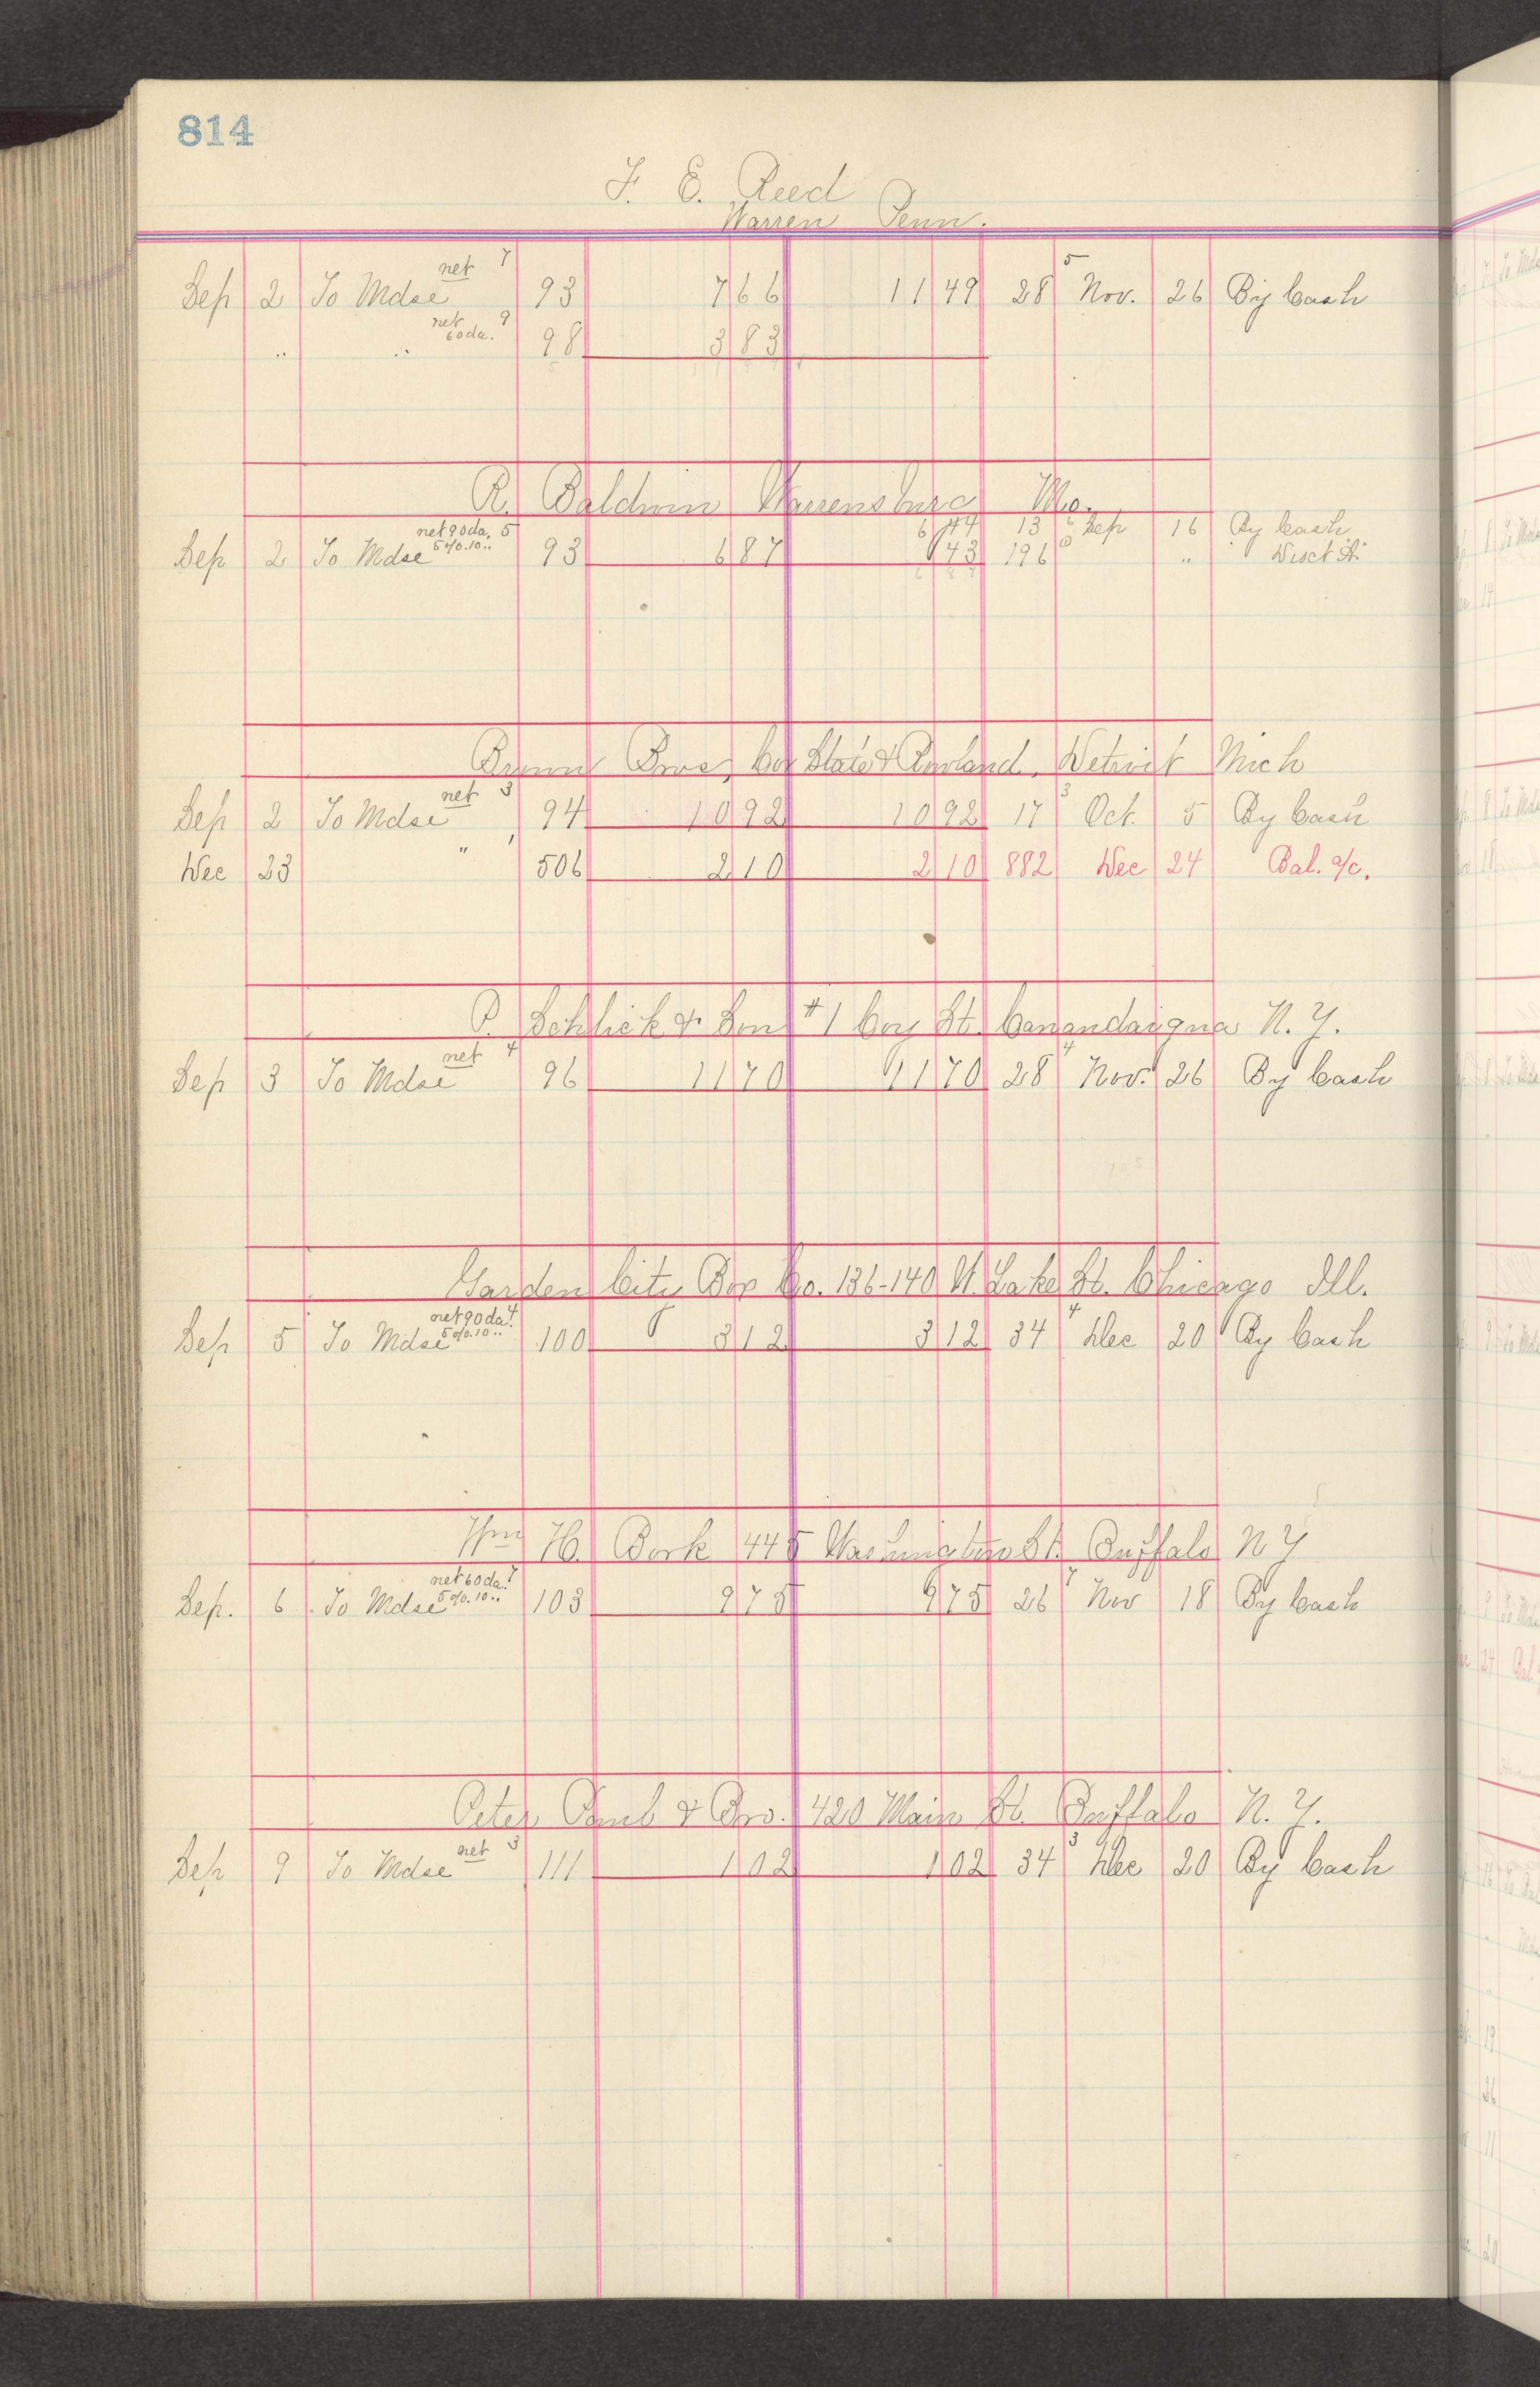 814
F. E. Reed
Warren Penn.
Sep 2 To Mdse net 7 93 7 66 11 49 28 5 Nov. 26 By Cash
" " net 60 da. 9 98 3 83
R. Baldwin Warrensburg Mo.
6 44 13 6 Sep 16 By Cash
Sep 2 To Mdse net 90 da. 5 5%.10.. 93 6 87 43 196 6 " " Disct %
Brown Bros, Cor State & Detroit Mich
Sep 2 To Mdse net 3 94 10 92 10 92 17 3 Oct. 5 By Cash
Dec 23 " 506 2 10 2 10 882 Dec 24 Bal. a/c.
P. Schlick & Son #1 Coy St. Canandaigua N. Y.
Sep 3 To Mdse net 4 96 11 70 11 70 28 4 Nov. 26 By Cash
Garden City Box Co. 136-140 W. Lake St. Chicago Ill.
Sep 5 To Mdse net 90 da. 4 5%.10.. 100 3 12 3 12 34 4 Dec 20 By Cash
Wm H. Bork 445 Washington St. Buffalo N Y
Sep. 6 To Mdse net 60 da. 7 5%.10.. 103 9 75 9 75 26 7 Nov 18 By Cash
Peter Paul & Bro. 420 Main St. Buffalo N. Y.
Sep 9 To Mdse net 3 111 1 02 1 02 34 3 Dec 20 By Cash